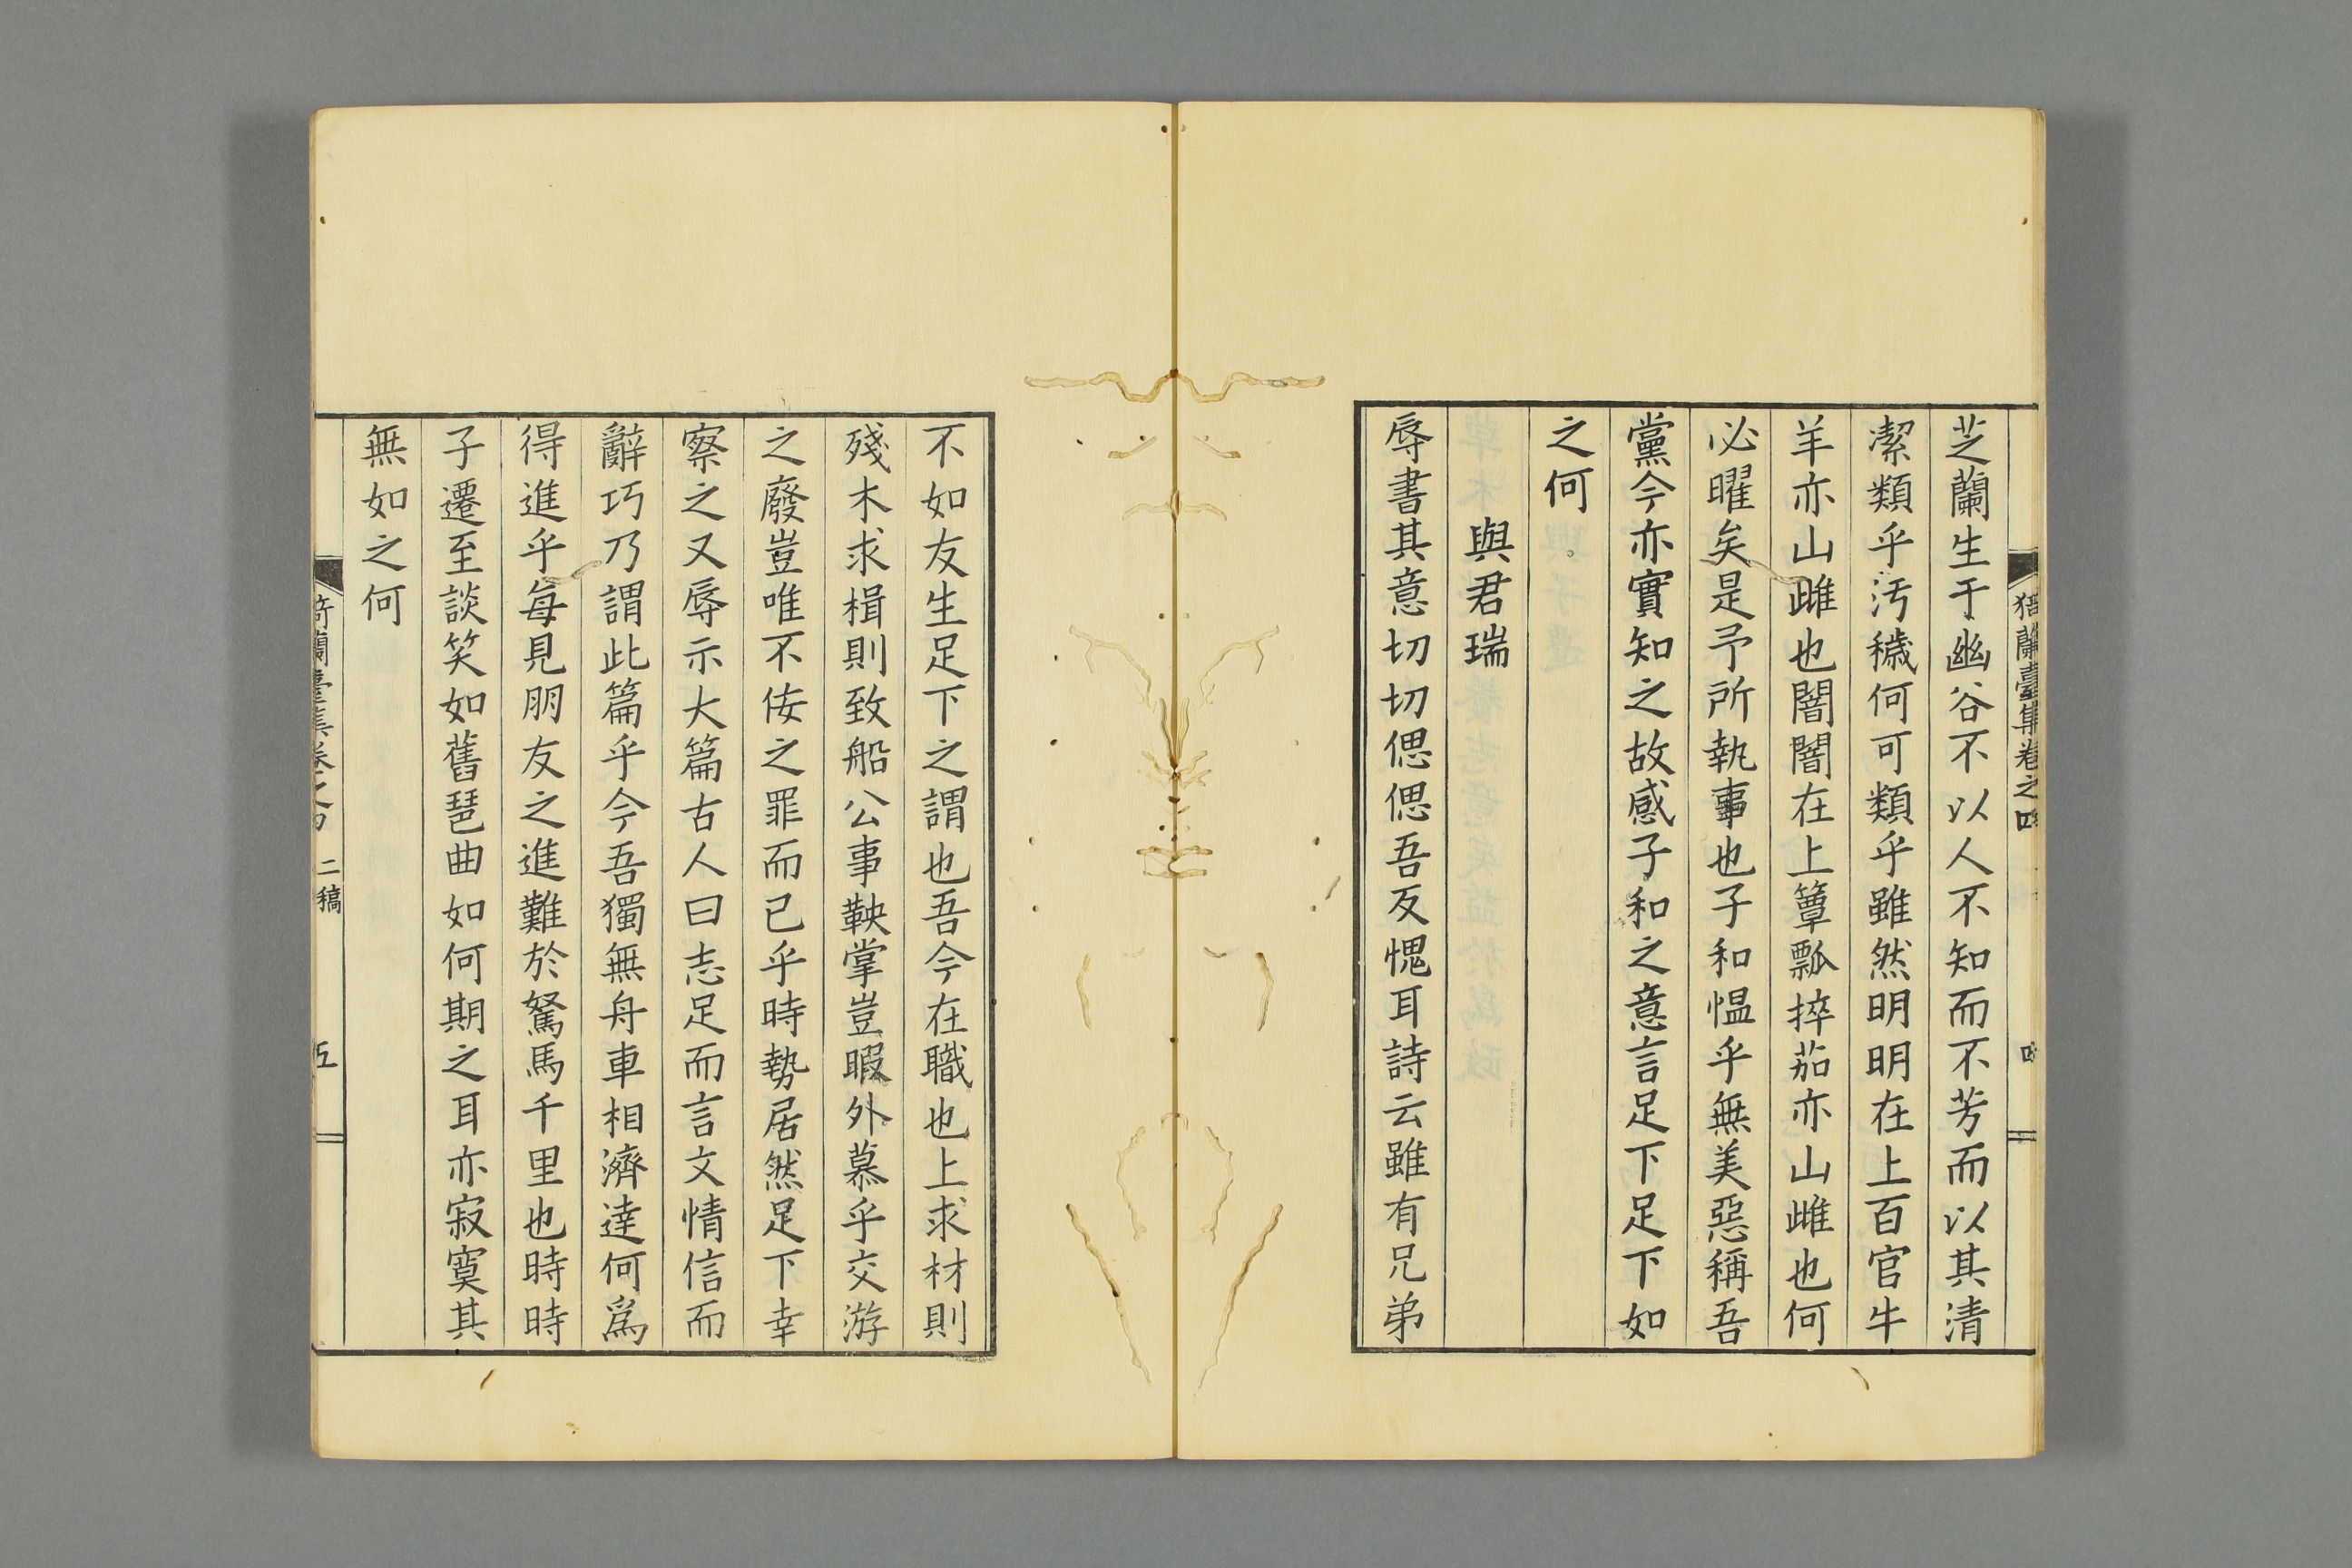 猗蘭臺集卷之四
四
芝蘭生于幽谷不以人不知而不芳而以其清
潔類乎汚穢何可類乎雖然明明在上百官牛
羊亦山雌也闇闇在上簞瓢捽茹亦山雌也何
必曜矣是予所執事也子和慍乎無美惡稱吾
黨今亦實知之故感子和之意言足下足下如
之何
與君瑞
辱書其意切切偲偲吾反愧耳詩云雖有兄弟
不如友生足下之謂也吾今在職也上求材則
殘木求楫則致船公事鞅掌豈暇外慕乎交游
之廢豈唯不佞之罪而已乎時勢居然足下幸
察之又辱示大篇古人曰志足而言文情信而
辭巧乃謂此篇乎今吾獨無舟車相濟達何爲
得進乎每見朋友之進難於駑馬千里也時時
子遷至談笑如舊琶曲如何期之耳亦寂寞其
無如之何
猗蘭臺集卷之四 二稿
五